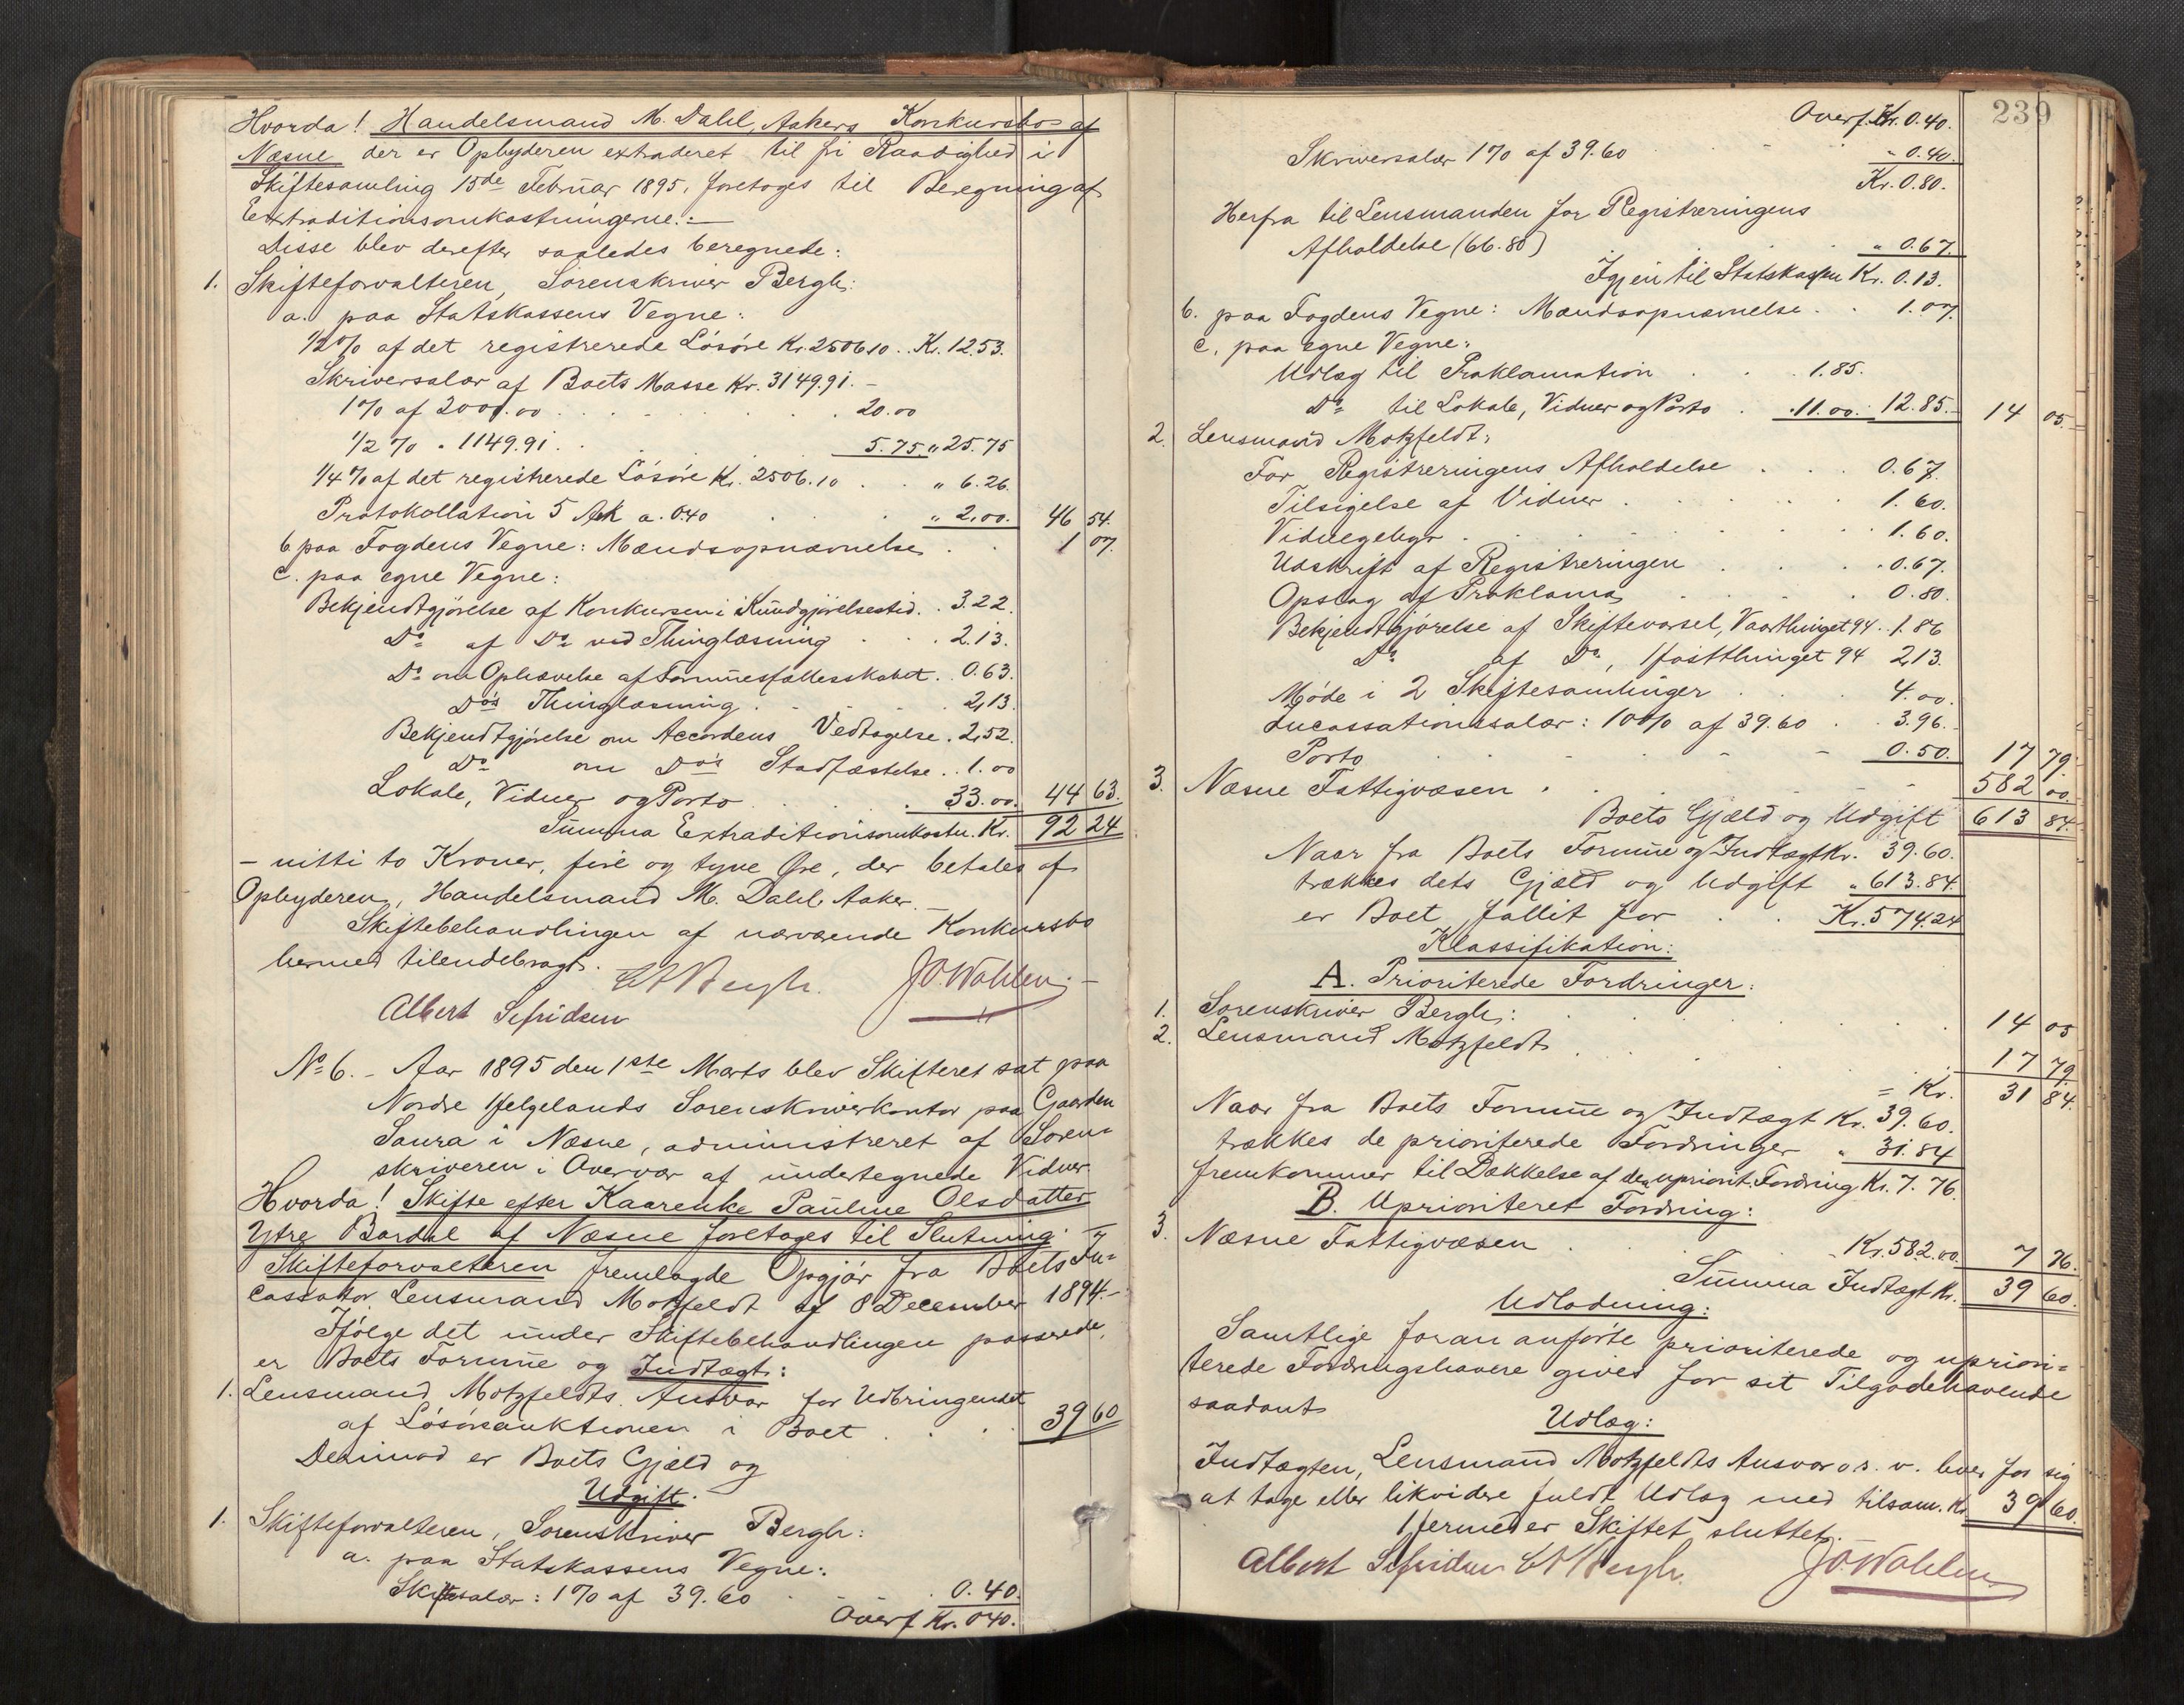 Hvorda! Handelsmand M. Dahl, Aakers Konkursbo af
Næsne der er Opbyderen extraderet til fri Raadighed i
Skiftesamling 15de Februar 1895, foretoges til Beregning af
Extraditionsomkostningerne.:—
Disse blev derefter saaledes beregnede:
1. Skifteforvalteren, Sorenskriver Bergh:
a. paa Statskassens Vegne:
1/2 % af det registrerede Løsøre Kr. 2506.10 . . Kr. 12.53.
Skriversalær af Boets Masse Kr. 3149.91. –
1 % af 2000.00 . . . 20.00
1/2 % " 1149.91 . . 5.75 " 25.75
1/4 % af det registrerede Løsøre Kr. 2506.10 . . " 6.26.
Protokollation 5 Ark a. 0.40 . . " 2.00. 46 54.
b. paa Fogdens Vegne: Mændsopnævnelse . . 1 07.
c. paa egne Vegne:
Bekjendtgjørelse af Konkursen i Kundgjørelsestid. . 3.22.
Do af Do ved Thinglæsning . . . 2.13.
Do om Ophævelse af Formuesfællesskabet . . 0.63.
Do's Thinglæsning . . . 2.13.
Bekjendtgjørelse om Accordens Vedtagelse . 2.52.
Do om Do's Stadfæstelse . . 1.00
Lokale, Vidner og Porto . . . 33.00. 44 63.
Summa Extraditionsomkostn. Kr. 92 24
– nitti to Kroner, fire og tyve Øre, der betales af
Opbyderen, Handelsmand M. Dahl, Aaker. –
Skiftebehandlingen af nærværende Konkursbo
hermed tilendebragt.
Bergh. J O Wahlen. –
Albert Sefridsen
No 6. – Aar 1895 den 1ste Marts blev Skifteret sat paa
Nordre Helgelands Sorenskriverkontor paa Gaarden
Saura i Næsne, administreret af Soren-
skriveren i Overvær af undertegnede Vidner
Hvorda! Skifte efter Kaarenke Pauline Olsdatter
Ytre Bardal af Næsne foretoges til Slutning. –
Skifteforvalteren fremlagde Opgjør fra Boets In-
cassator Lensmand Motzfeldt af 8 December 1894. –
Ifølge det under Skiftebehandlingen passerede,
er Boets Formue og Indtægt:
1. Lensmand Motzfeldts Ansvar for Udbringendet
af Løsøreauktionen i Boet . . . 39 60
Derimod er Boets Gjæld og
Udgift.
1. Skifteforvalteren, Sorenskriver Bergh:
a. paa Statskassens Vegne:
Skiftesalær: 1 % af 39.60 . . . 0.40.
Overf. Kr. 0.40.
239
Overf. Kr. 0.40.
Skriversalær 1 % af 39.60 . . . " 0.40.
Kr. 0.80.
Herfra til Lensmanden for Registreringens
Afholdelse (66.80) . . " 0.67.
Igjen til Statskassen Kr. 0.13.
b. paa Fogdens Vegne: Mændsopnævnelse . . 1.07.
c. paa egne Vegne:
Udlæg til Proklamation . . . 1.85.
Do til Lokale, Vidner og Porto . . 11.00. 12.85. 14 05.
2. Lensmand Motzfeldt:
For Registreringens Afholdelse . . . 0.67.
Tilsigelse af Vidner . . . 1.60.
Vidnegebyr . . . 1.60.
Udskrift af Registreringen . . . 0.67.
Opslag af Proklama . . . 0.80.
Bekjendtgjørelse af Skiftevarsel, Vaarthinget 94 . . 1.86
Do af Do, Høstthinget 94 2.13.
Møde i 2 Skiftesamlinger . . . 4.00.
Incassationssalær: 10 % af 39.60 . . 3.96.
Porto . . . 0.50. 17 79.
3. Næsne Fattigvæsen . . . 582 00.
Boets Gjæld og Udgift 613 84.
Naar fra Boets Formue og Indtægt Kr. 39.60.
trækkes dets Gjæld og Udgift " 613.84.
er Boet fallit for . . Kr. 574.24
Klassifikation:
A. Prioriterede Fordringer:
1. Sorenskriver Bergh: . . . 14 05
2. Lensmand Motzfeldt . . . 17 79
= Kr. 31 84.
Naar fra Boets Formue og Indtægt Kr. 39.60.
trækkes de prioriterede Fordringer " 31.84
fremkommer til Dækkelse af den upriorit. Fordring Kr. 7.76.
B. Uprioriteret Fordring:
3. Næsne Fattigvæsen . . . Kr. 582.00. 7 76.
Summa Indtægt Kr. 39 60.
Udlodning:
Samtlige foran anførte prioriterede og upriori-
terede Fordringshavere gives for sit Tilgodehavende
saadant
Udlæg:
Indtægten, Lensmand Motzfeldts Ansvar o.s.v. hver for sig
at tage eller likvidere fuldt Udlæg med tilsam. Kr. 39 60.
Hermed er Skiftet sluttet.
Albert Sefridsen Bergh. J O Wahlen